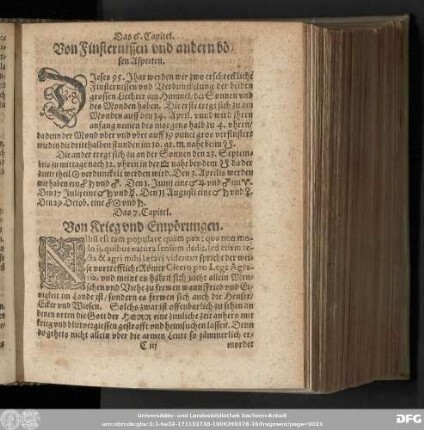 Das 6. Capitel.
Von Finsternissen vnd andern bö
sen Aspecten.
Dieses 95. Jhar werden wir zwo erschreckliche
Finsternissen vnd Verdunckelung der beiden
grossen Liechter am Himmel, der Sonnen vnd
des Monden haben. Die erste tregt sich zu am
Monden auff den 14. April. vnnd wird ihren
anfang nemen des morgens halb zu 4. vhren/
da denn der Mond vber vnd vber auff 19 punct gros verfinstert
die dritthalben stunden im
Die ander tregt sich zu an der Sonnen den 23. Septem
bris zu mittage nach 12. vhren in der ♎ nahe bey dem
theil ☉ verdunckelt werden wird. Den 3. Aprilis werden
wir haben ein ☍ ♄ vnd ♂. Den 1. Junii eine
Den 17 Julij eine Den 11 Augusti eine
Den 29 Octob. eine ☍ ☉ vnd ♄.
Das 7. Capitel.
Von Krieg vnd Empörungen.
Nihil est tam populare quam pax: qua non mo-
do ii, quibus natura sensum dedit, sed etiam te-
cta & agri mihi lætari videntur spricht der wei-
se vortrefflich Römer Cicero pro Lege Agra-
ria, vnd meint es haben sich nicht allein Men-
schen vnd Viehe zu frewen wann Fried vnd Ei-
nigkeit im Lande ist/ sondern es frewen sich auch die Heuser/
Ecker vnd Wiesen. Solchs zwar ist offenbarlich zu sehen an
denen orten die Gott der HERR eine zimliche zeit anhero mit
krieg vnd blutvergiessen gestrafft vnd heimsuchen lassen. Denn
do gehets nicht allein vber die armen Leute so jämmerlich er-
C iij mordet
Universitäts- und Landesbibliothek Sachsen-Anhalt
DFG